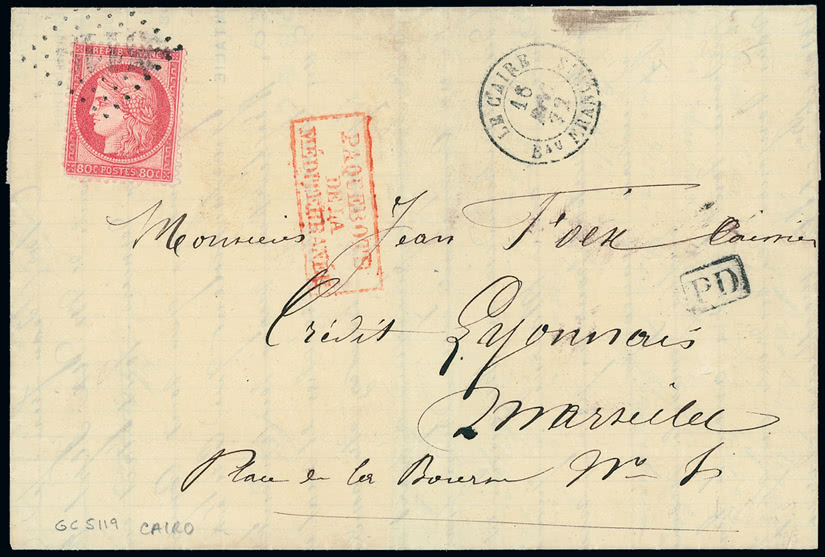 REPUB
80C POSTES 80C
LE CAIRE
16
72
BAU FRANC
PAQUEBOTS
DE LA
MÉDITERRANÉE
Monsieur Jean Foex Caissier
PD
Crédit Lyonnais
Marseille
Place de la Bourse No
GC 5119 CAIRO